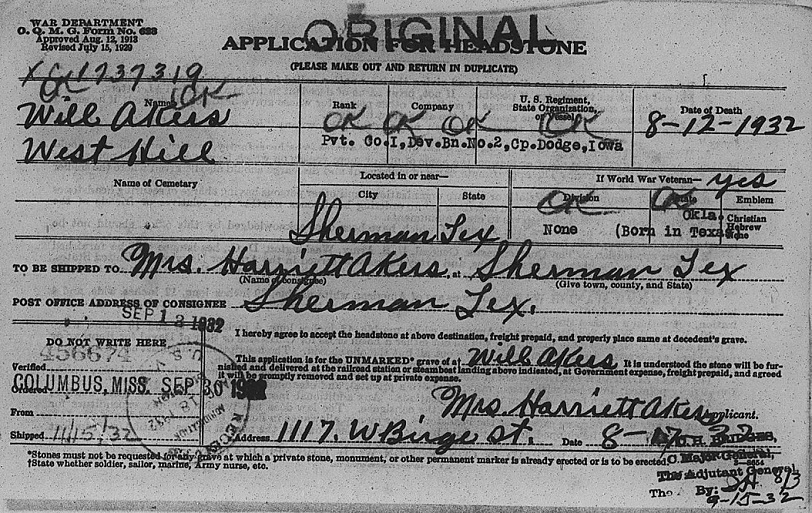 WAR DEPARTMENT
O. Q. M. G. Form No. 623
Approved Aug. 12, 1913
Revised July 15, 1929
ORIGINAL
APPLICATION FOR HEADSTONE
(PLEASE MAKE OUT AND RETURN IN DUPLICATE)
XC1737319
OK OK
Name Rank Company U. S. Regiment, State Organization, or Vessel Date of Death
Will Akers OK OK OK OK 8-12-1932
Pvt. Co.I, Dev.Bn.No.2, Cp.Dodge, Iowa
West Hill
Name of Cemetary Located in or near— If World War Veteran— yes
City State Division State Emblem
OK OK
Okla. Christian
Hebrew
None
Sherman Tex None (Born in Texas
TO BE SHIPPED TO Mrs. Harriett Akers, at Sherman Tex
(Name of consignee) (Give town, county, and State)
POST OFFICE ADDRESS OF CONSIGNEE Sherman Tex.
SEP 13 1932
I hereby agree to accept the headstone at above destination, freight prepaid, and properly place same at decedent's grave.
DO NOT WRITE HERE
456674
This application is for the UNMARKED* grave of at Will Akers It is understood the stone will be furnished
Verified
and delivered at the railroad station or steamboat landing above indicated, at Government expense, freight prepaid, and agreed
it will be promptly removed and set up at private expense.
COLUMBUS, MISS. SEP 30 1932
Ordered
From
Mrs. Harriett Akers Applicant.
Shipped 11/15/32
Address 1117. W Birge St. Date 8-17-32
C. H. BRIDGES,
Major General,
The Adjutant General
By:
9-15-32
*Stones must not be requested for any grave at which a private stone, monument, or other permanent marker is already erected or is to be erected.
†State whether soldier, sailor, marine, Army nurse, etc.